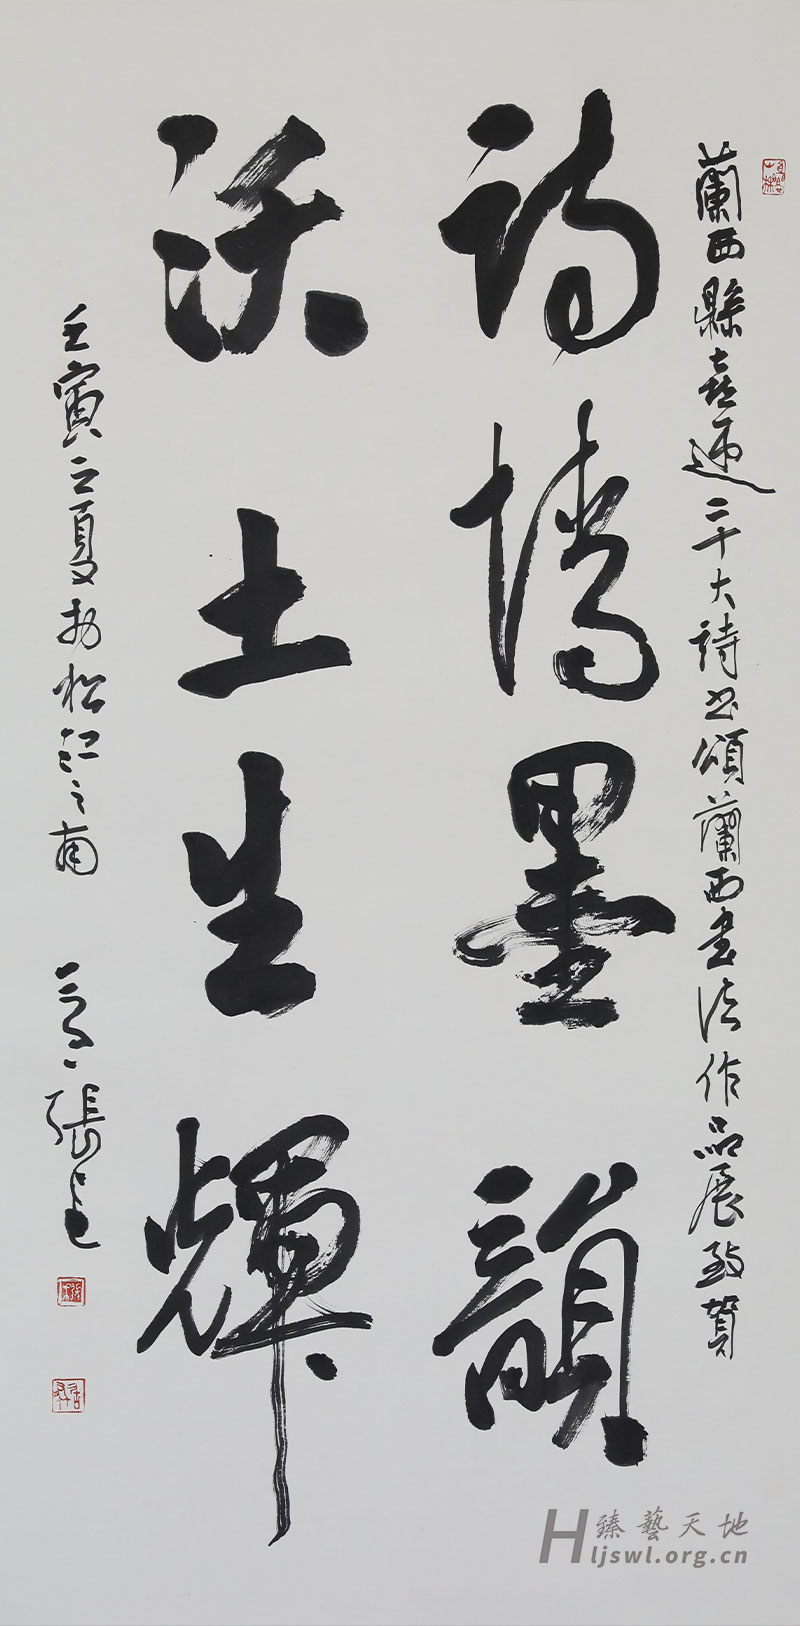 蘭西縣喜迎二十大詩書頌蘭西書法作品展致賀
詩情墨韻
沃土生輝
壬寅之夏於松江之南
張
臻藝天地
ljswl.org.cn